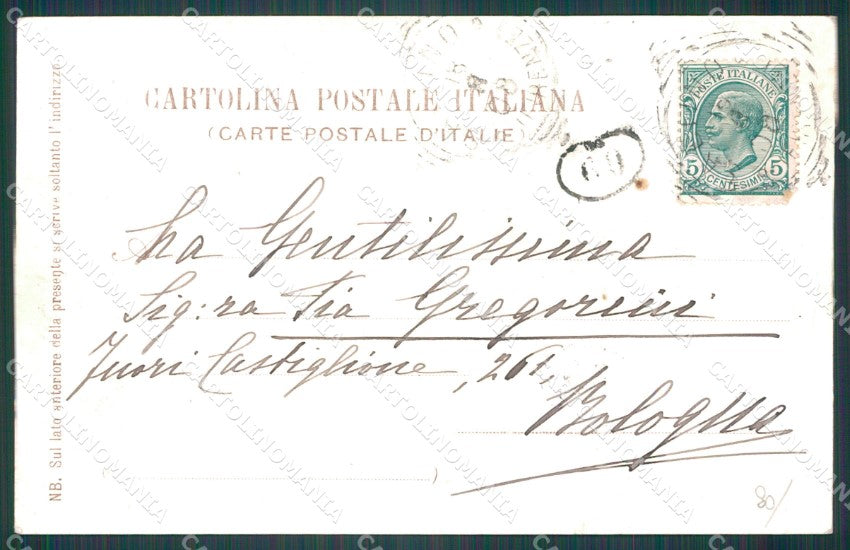 CARTOLINA POSTALE ITALIANA
(CARTE POSTALE D'ITALIE)
POSTE ITALIANE
5 5
CENTESIMI
60
Gentilissima
Sig:ra Pia Gregorini
Fuori Castiglione, 261,
Bologna
NB. Sul lato anteriore della presente si scrive soltanto l'indirizzo.
80/
CARTOLINOMANIA